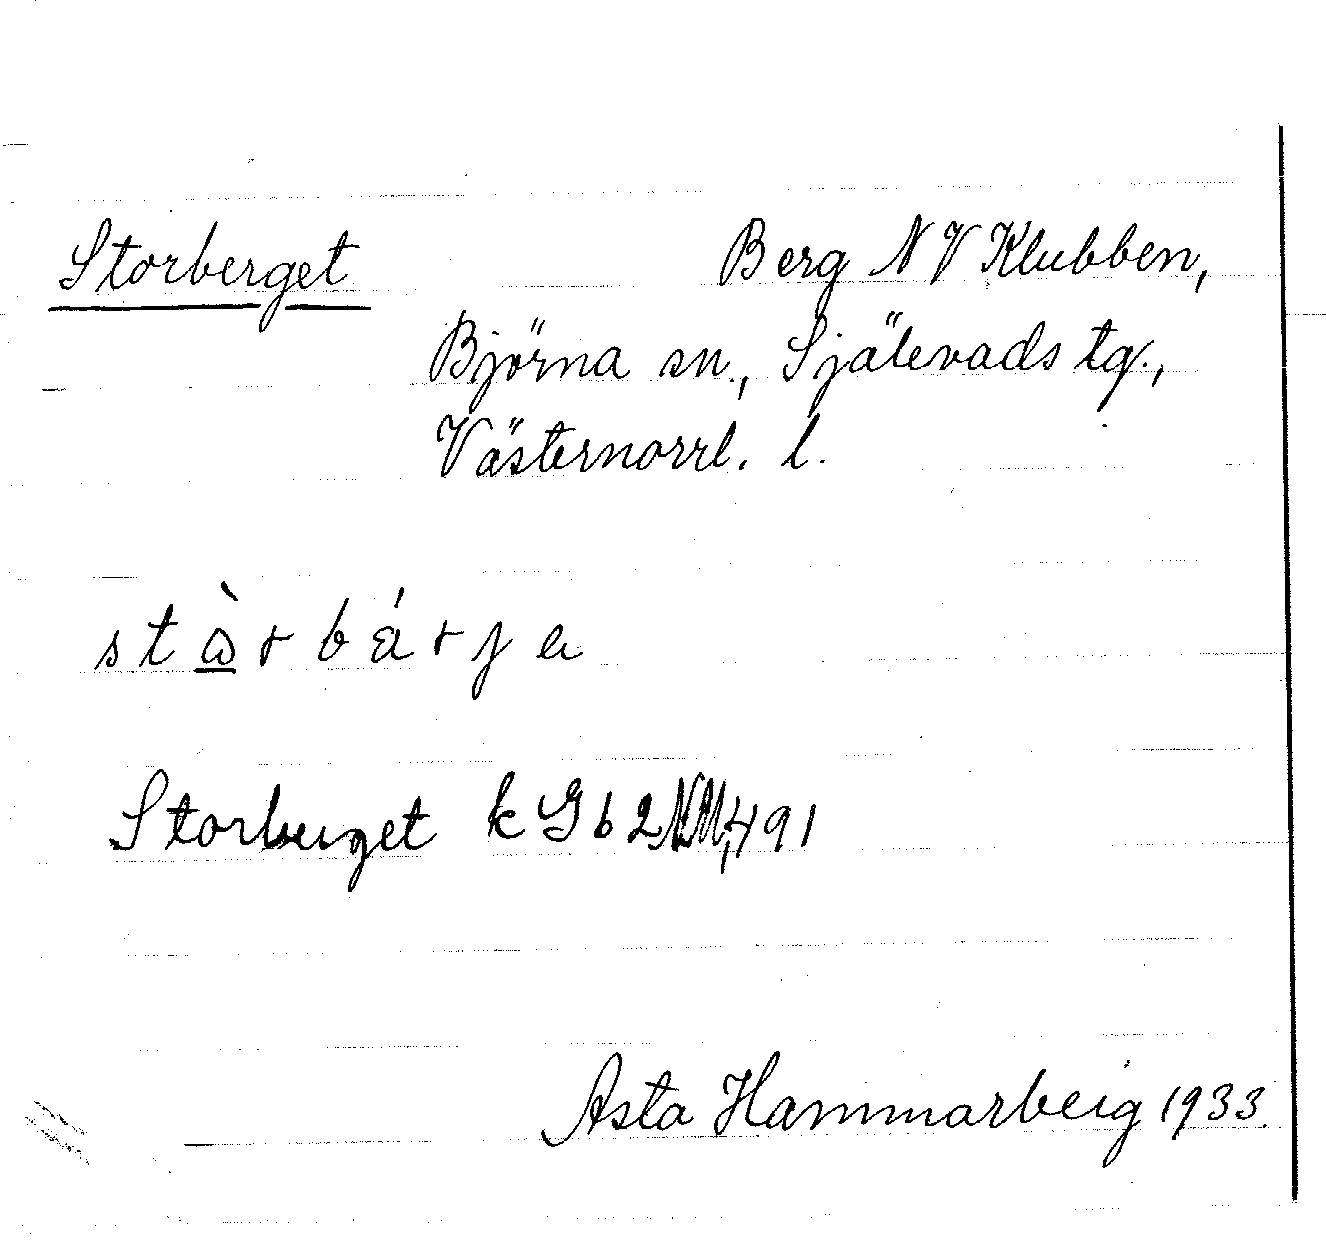 Storberget Berg NV Klubben,
Björna sn., Själevads tg.,
Västernorrl. l.
Storberget k G b 2 NM, 491
Asta Hammarberg 1933.